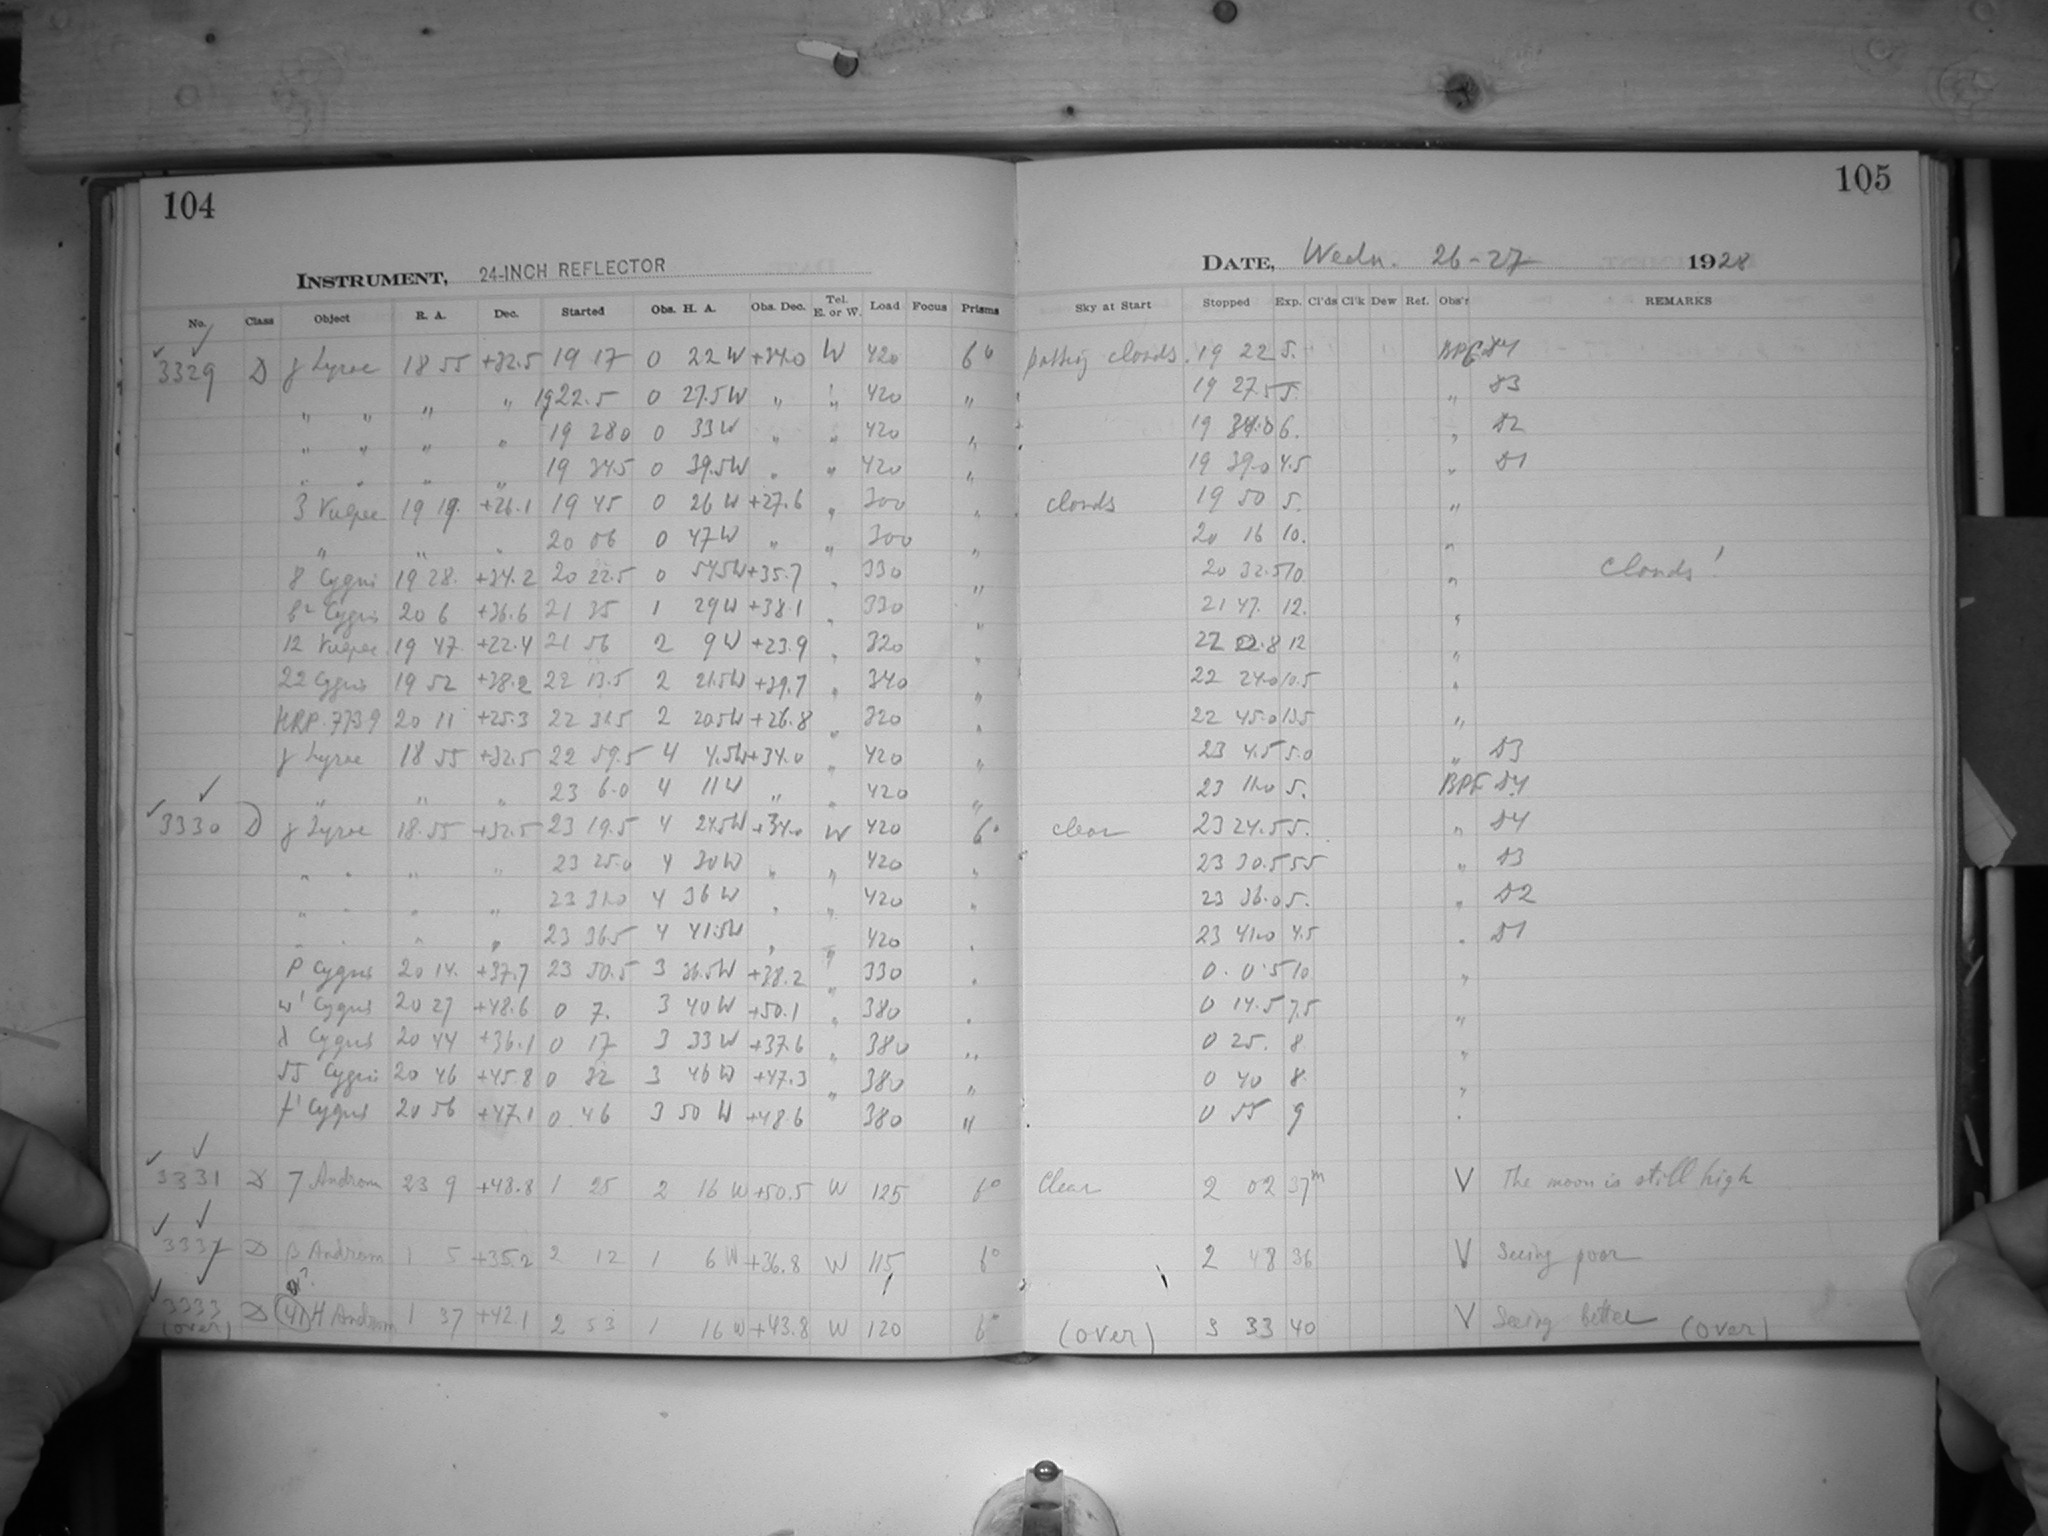 104
105
INSTRUMENT, 24-INCH REFLECTOR
DATE, Wedn. 26-27 1928
No. Class Object R. A. Dec. Started Obs. H. A. Obs. Dec. Tel. E. or W. Load Focus Prisms Sky at Start Stopped Exp. Cl'ds Cl'k Dew Ref. Obs'r REMARKS
3329 D γ Lyrae 18 55 +32.5 19 17 0 22 W +34.0 W 420 6° passing clouds. 19 22 5. S4
" " " " 19 22.5 0 27.5 W " " 420 " 19 27.5 5. " S3
" " " " 19 28.0 0 33 W " " 420 " 19 6. " S2
" " " " 19 34.5 0 39.5 W " " 420 " 19 39.0 4.5 " S1
3 Vulpec 19 19. +26.1 19 45 0 26 W +27.6 " 300 " clouds 19 50 5. "
" " " 20 06 0 47 W " " 300 " 20 16 10. "
8 Cygni 19 28. +34.2 20 22.5 0 54.5 W +35.7 " 330 " 20 32.5 10. " Clouds!
b² Cygnis 20 6 +36.6 21 35 1 29 W +38.1 " 330 " 21 47. 12. "
12 Vulpec 19 47 +22.4 21 56 2 9 W +23.9 " 320 " 22 8 12 "
22 Cygnis 19 52 +38.2 22 13.5 2 21.5 W +39.7 " 340 " 22 24.0 10.5 "
HRP. 7739 20 11 +25.3 22 31.5 2 20.5 W +26.8 " 320 " 22 45.0 13.5 "
γ Lyrae 18 55 +32.5 22 59.5 4 4.5 W +34.0 " 420 " 23 4.5 5.0 " S3
" " " 23 6.0 4 11 W " " 420 " 23 11.0 5. BPG S4
3330 D γ Lyrae 18.55 +32.5 23 19.5 4 24.5 W +34.0 W 420 6° clear 23 24.5 5. " S4
" " " " 23 25.0 4 30 W " " 420 " 23 30.5 5.5 " S3
" " " " 23 31.0 4 36 W " " 420 " 23 36.0 5. " S2
" " " " 23 36.5 4 41.5 W " " 420 " 23 41.0 4.5 " S1
P Cygnus 20 14. +37.7 23 50.5 3 36.5 W +38.2 " 330 " 0. 0.5 10 "
w' Cygnus 20 27 +48.6 0 7. 3 40 W +50.1 " 380 " 0 14.5 7.5 "
λ Cygnus 20 44 +36.1 0 17 3 33 W +37.6 " 380 " 0 25. 8 "
55 Cygni 20 46 +45.8 0 32 3 46 W +47.3 " 380 " 0 40 8. "
f' Cygnus 20 56 +47.1 0.46 3 50 W +48.6 380 " 0 55 9 "
3331 D 7 Androm 23 9 +48.8 1 25 2 16 W +50.5 W 125 6° Clear 2 02 37m V The moon is still high
D β Androm 1 5 +35.2 2 12 1 6 W +36.8 W 115 6° 2 48 36 V Seeing poor
3333 D H Androm 1 37 +42.1 2 53 1 16 W +43.8 W 120 6° 3 33 40 V Seeing better
(over) (over) (over)